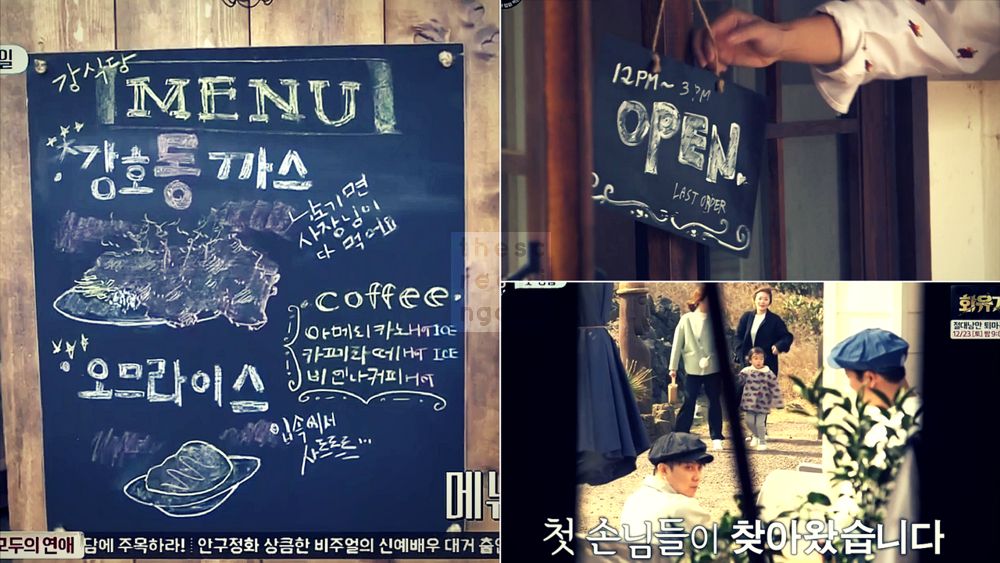 강식당
MENU
강호동 까스
남기면
사장님이
다 먹어요
coffee.
아메리카노 HOT ICE
카페라떼 HOT ICE
비엔나커피 HOT
오므라이스
입속에서
사르르르...
메뉴
모두의 연애
담에 주목하라! 안구정화 상큼한 비주얼의 신예배우 대거 출연
12PM~ 3PM
OPEN.
LAST ORDER
첫 손님들이 찾아왔습니다
화유기
절대낭만 퇴마
12/23 [토] 밤 9:0